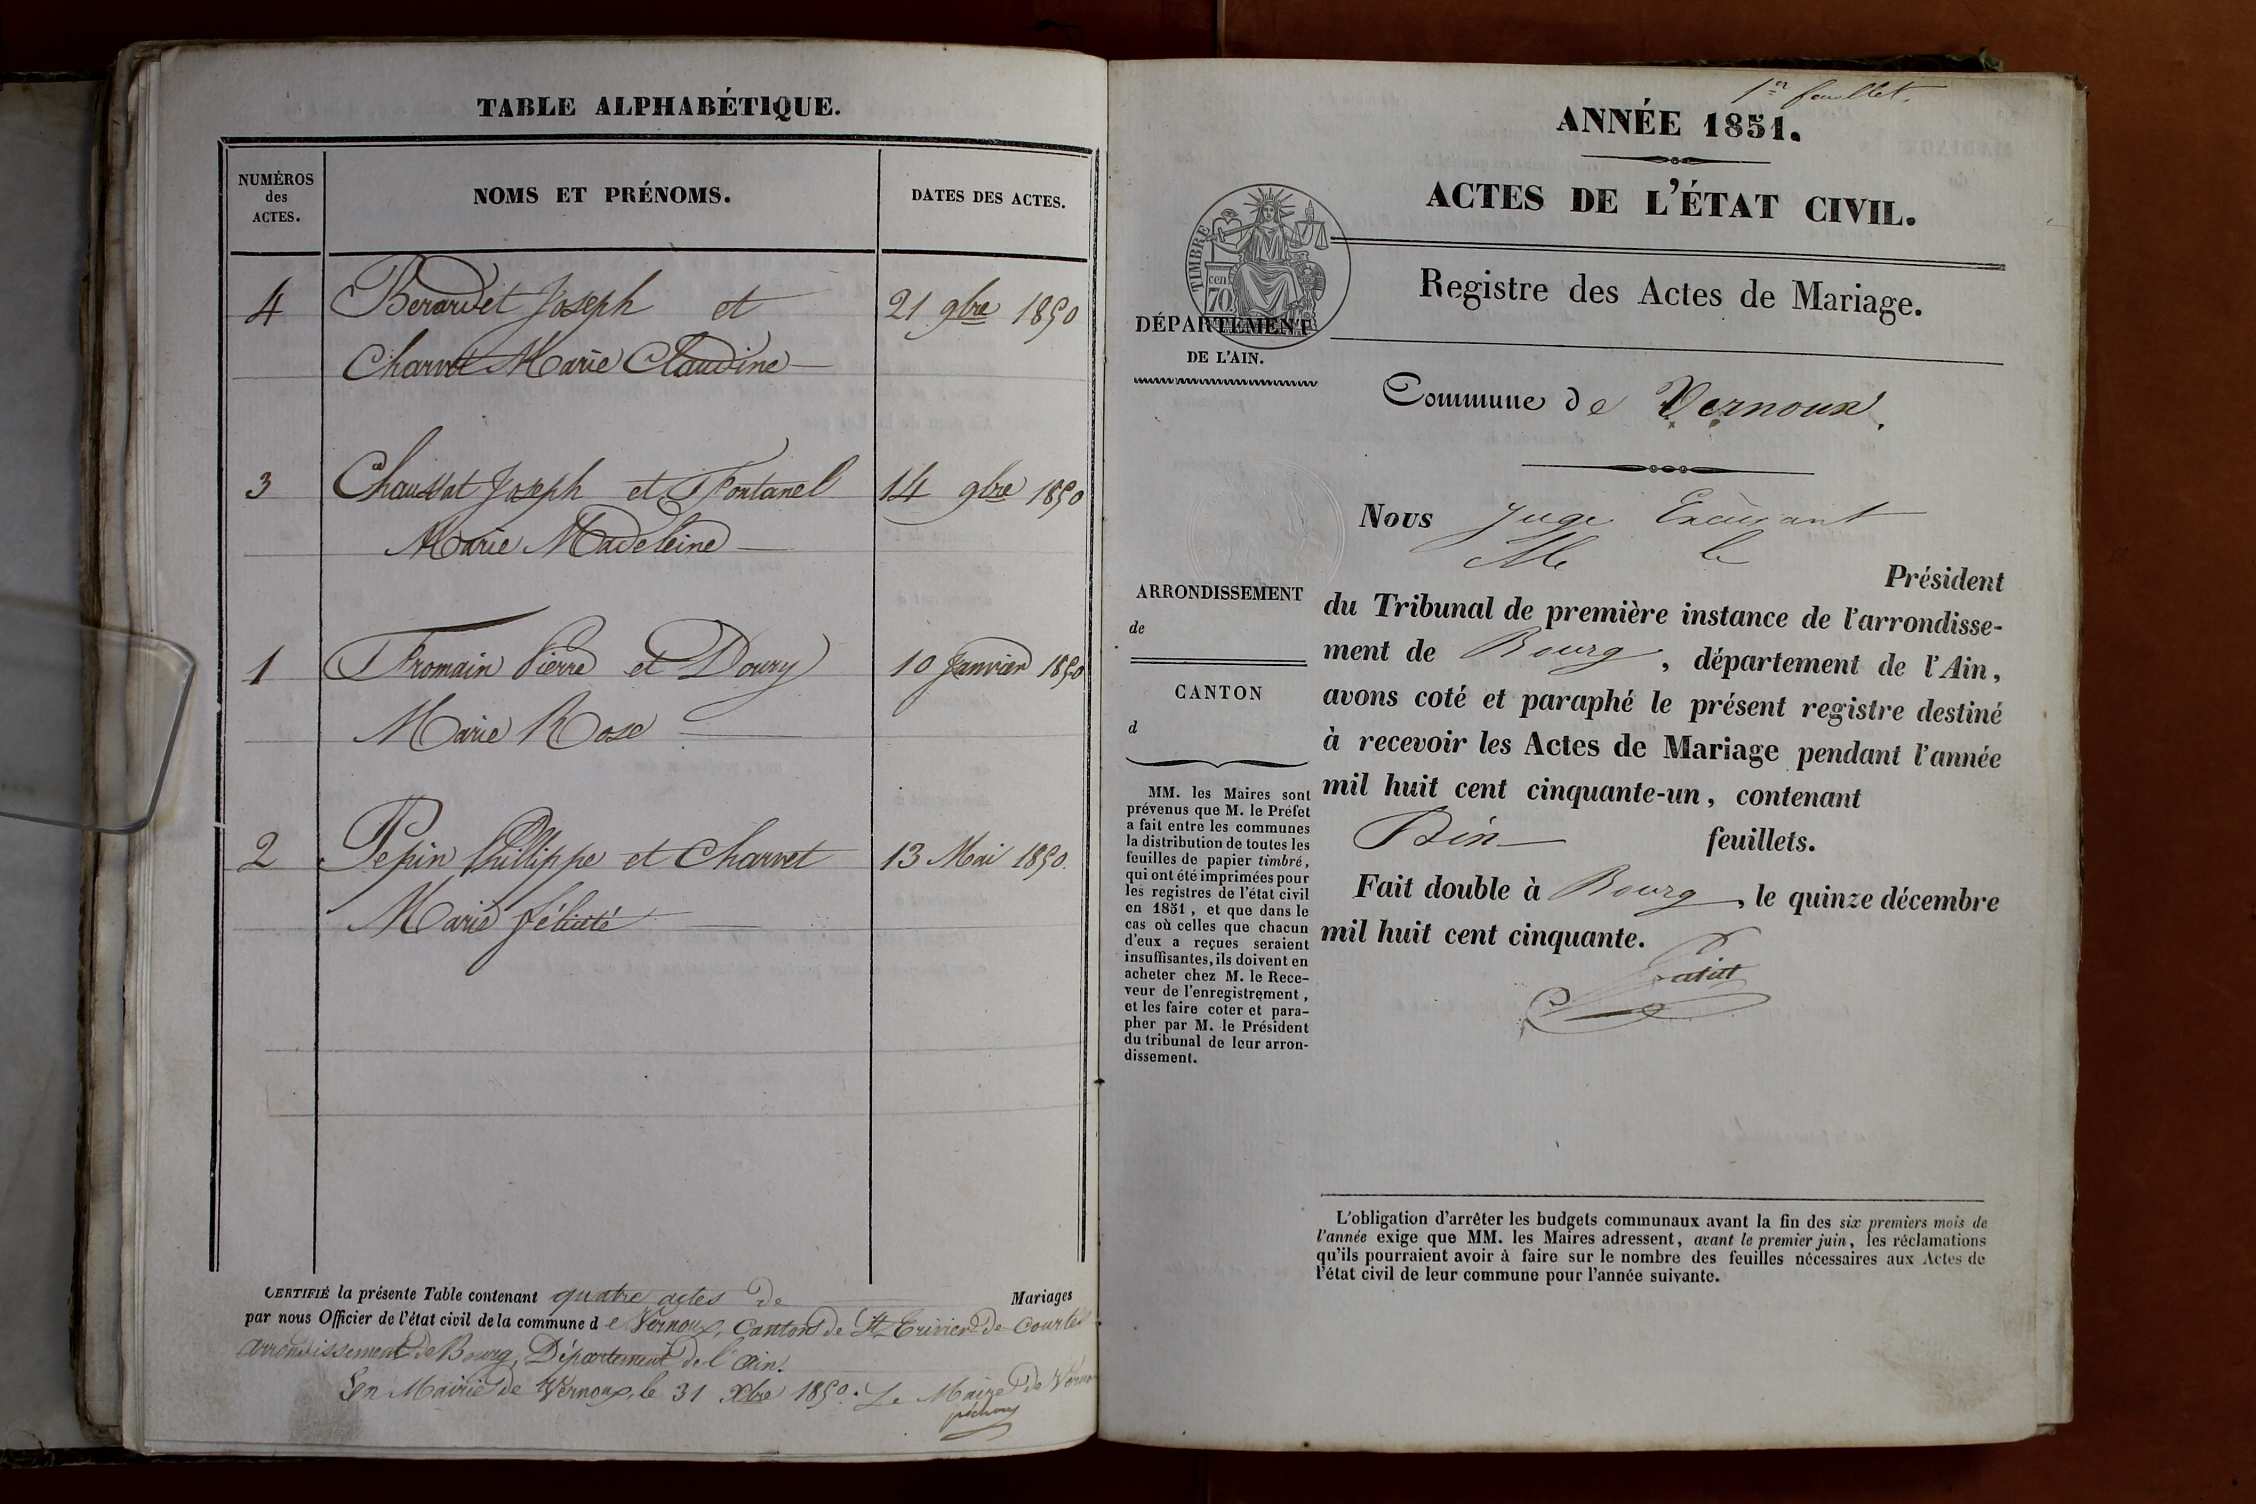 TABLE ALPHABÉTIQUE.
NUMÉROS
des
ACTES.
NOMS ET PRÉNOMS.
DATES DES ACTES.
4 Berardet Joseph et 21 9bre 1850
Charvet Marie Claudine
3 Chaussat Joseph et Fontanel 14 9bre 1850
Marie Madeleine
1 Fromain Pierre et Doury 10 Janvier 1850
Marie Rose
2 Pepin Phillippe et Charvet 13 Mai 1850.
Marie félicité
CERTIFIÉ la présente Table contenant quatre actes de Mariages
par nous Officier de l'état civil de la commune de Vernoux, Canton de St Trivier de Courtes
arrondissement de Bourg, Département de l'ain.
En Mairie de Vernoux, le 31 Xbre 1850. Le Maire de
1er feuillet.
ANNÉE 1851.
ACTES DE L'ÉTAT CIVIL.
Registre des Actes de Mariage.
TIMBRE
70
cen
DÉPARTEMENT
DE L'AIN.
Commune de Vernoux.
Nous Juge
M. le
Président
du Tribunal de première instance de l'arrondisse-
ment de Bourg, département de l'Ain,
avons coté et paraphé le présent registre destiné
à recevoir les Actes de Mariage pendant l'année
mil huit cent cinquante-un, contenant
feuillets.
Fait double à Bourg, le quinze décembre
mil huit cent cinquante.
ARRONDISSEMENT
de
CANTON
d
MM. les Maires sont
prévenus que M. le Préfet
a fait entre les communes
la distribution de toutes les
feuilles de papier timbré,
qui ont été imprimées pour
les registres de l'état civil
en 1851, et que dans le
cas où celles que chacun
d'eux a reçues seraient
insuffisantes, ils doivent en
acheter chez M. le Rece-
veur de l'enregistrement,
et les faire coter et para-
pher par M. le Président
du tribunal de leur arron-
dissement.
L'obligation d'arrêter les budgets communaux avant la fin des six premiers mois de
l'année exige que MM. les Maires adressent, avant le premier juin, les réclamations
qu'ils pourraient avoir à faire sur le nombre des feuilles nécessaires aux Actes de
l'état civil de leur commune pour l'année suivante.